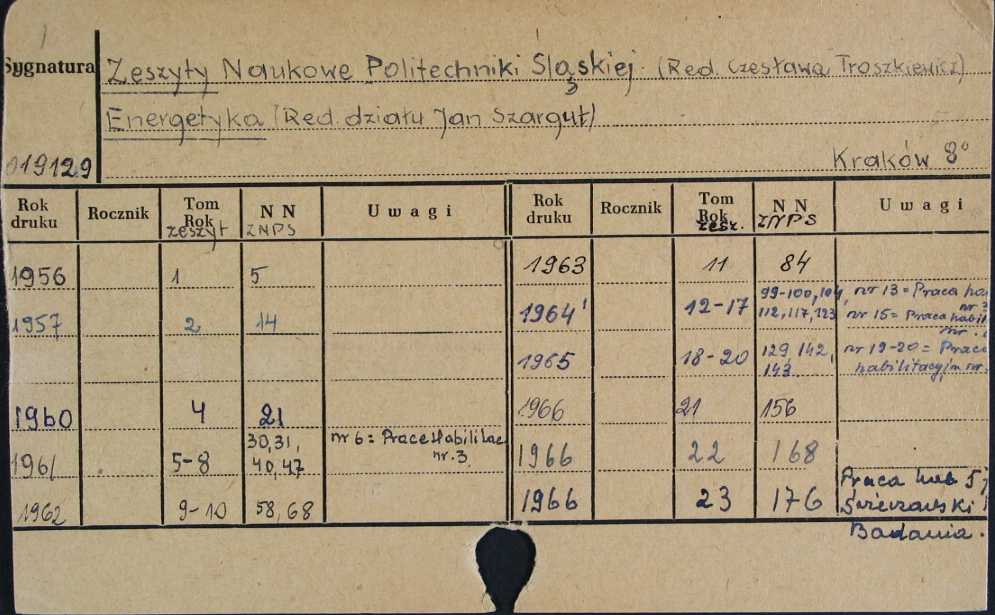 Sygnatura
Zeszyty Naukowe Politechniki Śląskiej. (Red. Czesława Troszkiewicz)
Energetyka (Red. działu Jan Szargut)
019129
Kraków 8°
Rok druku Rocznik Tom Rok zeszyt NN ZNPS Uwagi
1956 1 5
1957 2 14
1960 4 21
1961 5-8 30,31, 40,47 nr 6 = Prace Habilitac nr. 3
1962 9-10 58,68
Rok druku Rocznik Tom Rok zesz. NN ZNPS Uwagi
1963 11 84
1964 12-17 99-100,104, 112,117,123 nr 13 = Praca ha nr 15 = Praca habil
1965 18-20 129, 142, 143 nr 19-20 = Praca habilitacyjna nr.
1966 21 156
1966 22 168
1966 23 176 Praca hab 5 Badania.